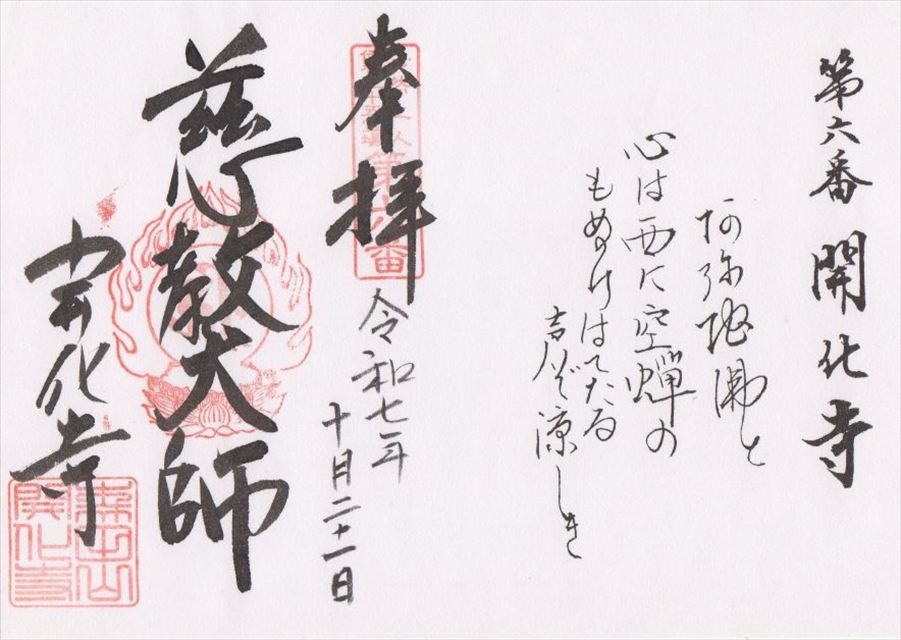 第六番 開化寺
阿弥陀佛と
心は西に空蝉の
もぬけはてたる
声ぞ涼しき
奉拝
第六番
令和七年
十月二十一日
慈教大師
開化寺
開化寺